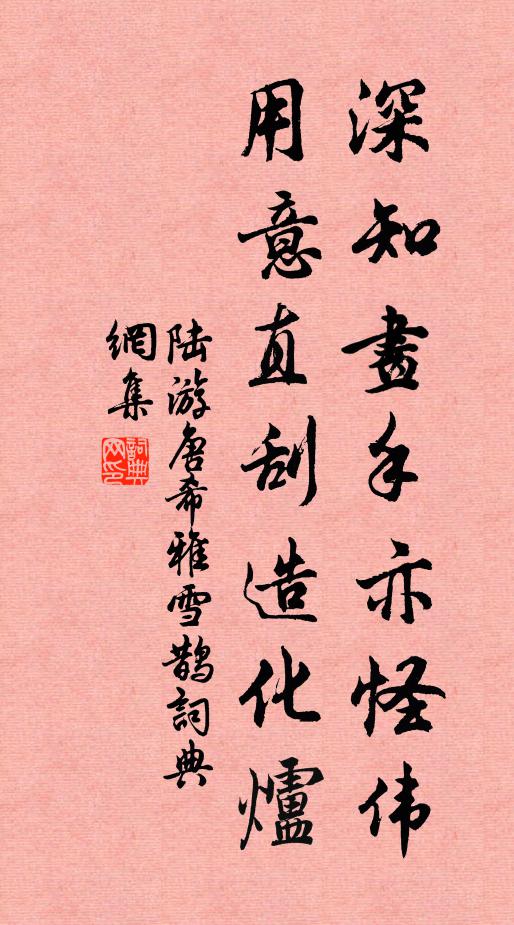 深知畫手亦怪伟
用意直刮造化爐
陆游唐希雅雪鹊詞典
網集
詞典
网印